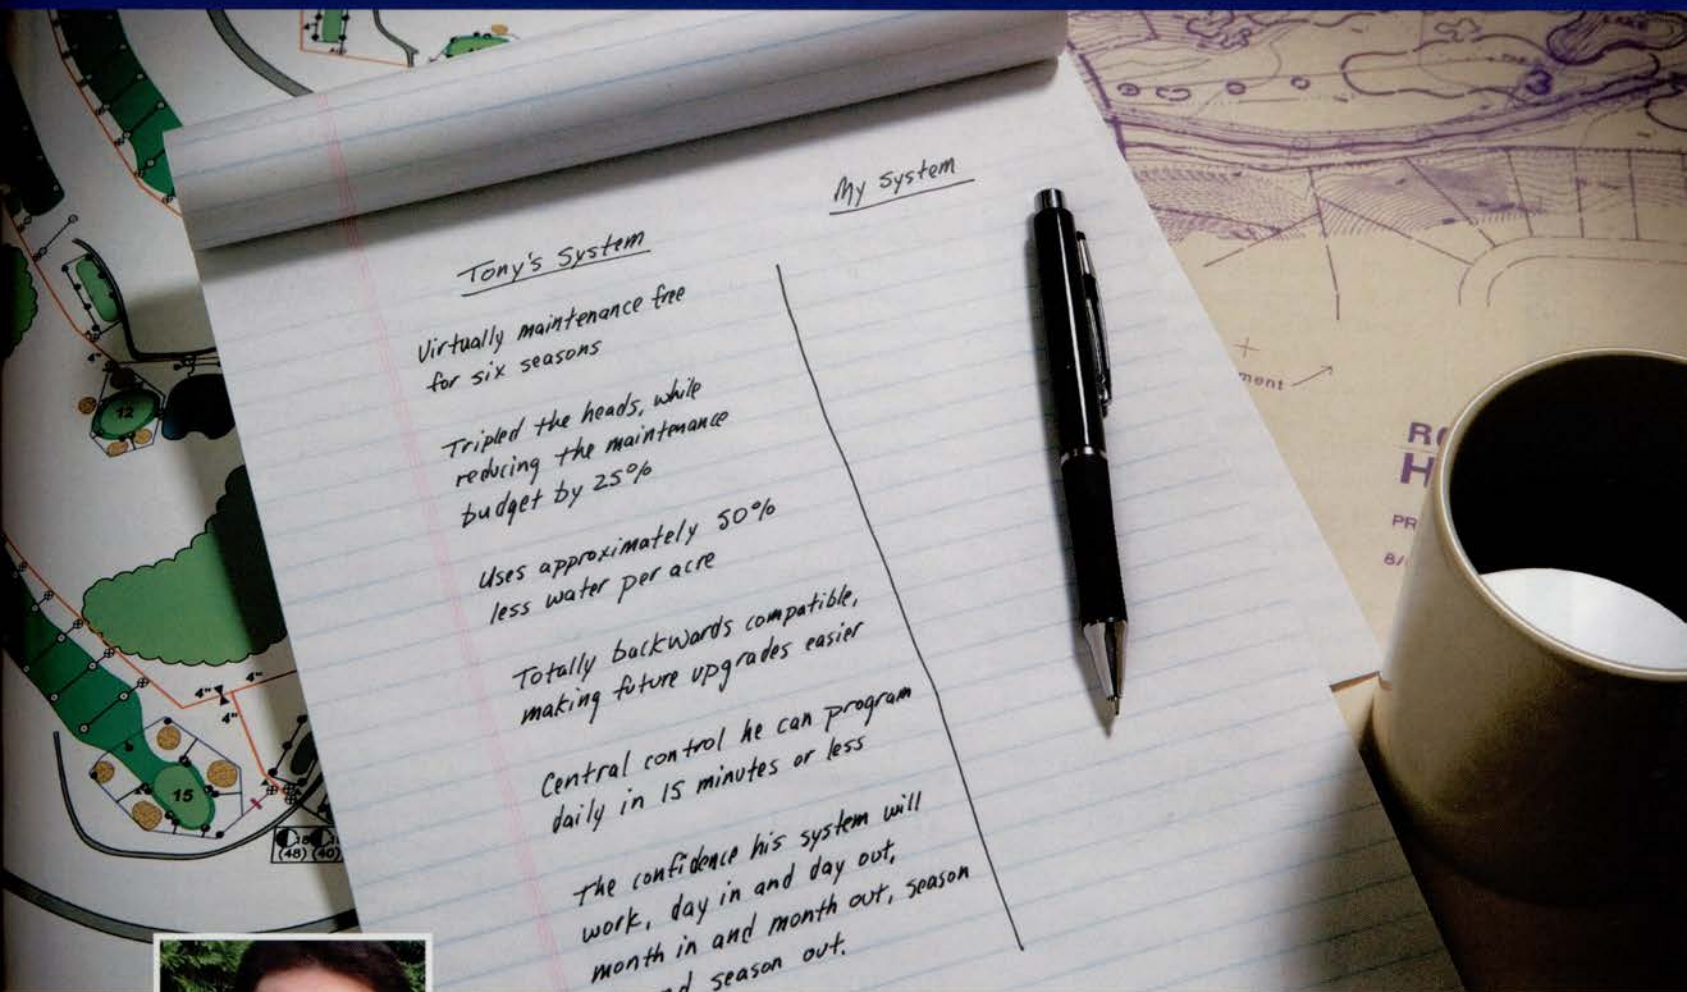 Tony's System
Virtually maintenance free
for six seasons
Tripled the heads, while
reducing the maintenance
budget by 25%
Uses approximately 50%
less water per acre
Totally backwards compatible,
making future upgrades easier
Central control he can program
daily in 15 minutes or less
The confidence his system will
work, day in and day out,
month in and month out, season
season out.
My System
12
4"
4"
4"
4"
15
(48) (40)
3
ment
H
PR
8/